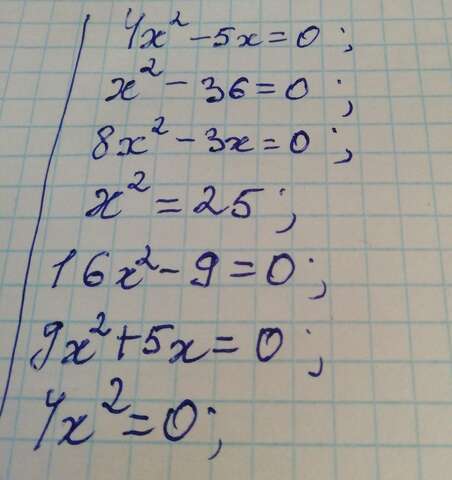 4x² - 5x = 0;
x² - 36 = 0;
8x² - 3x = 0;
x² = 25;
16x² - 9 = 0;
9x² + 5x = 0;
4x² = 0;